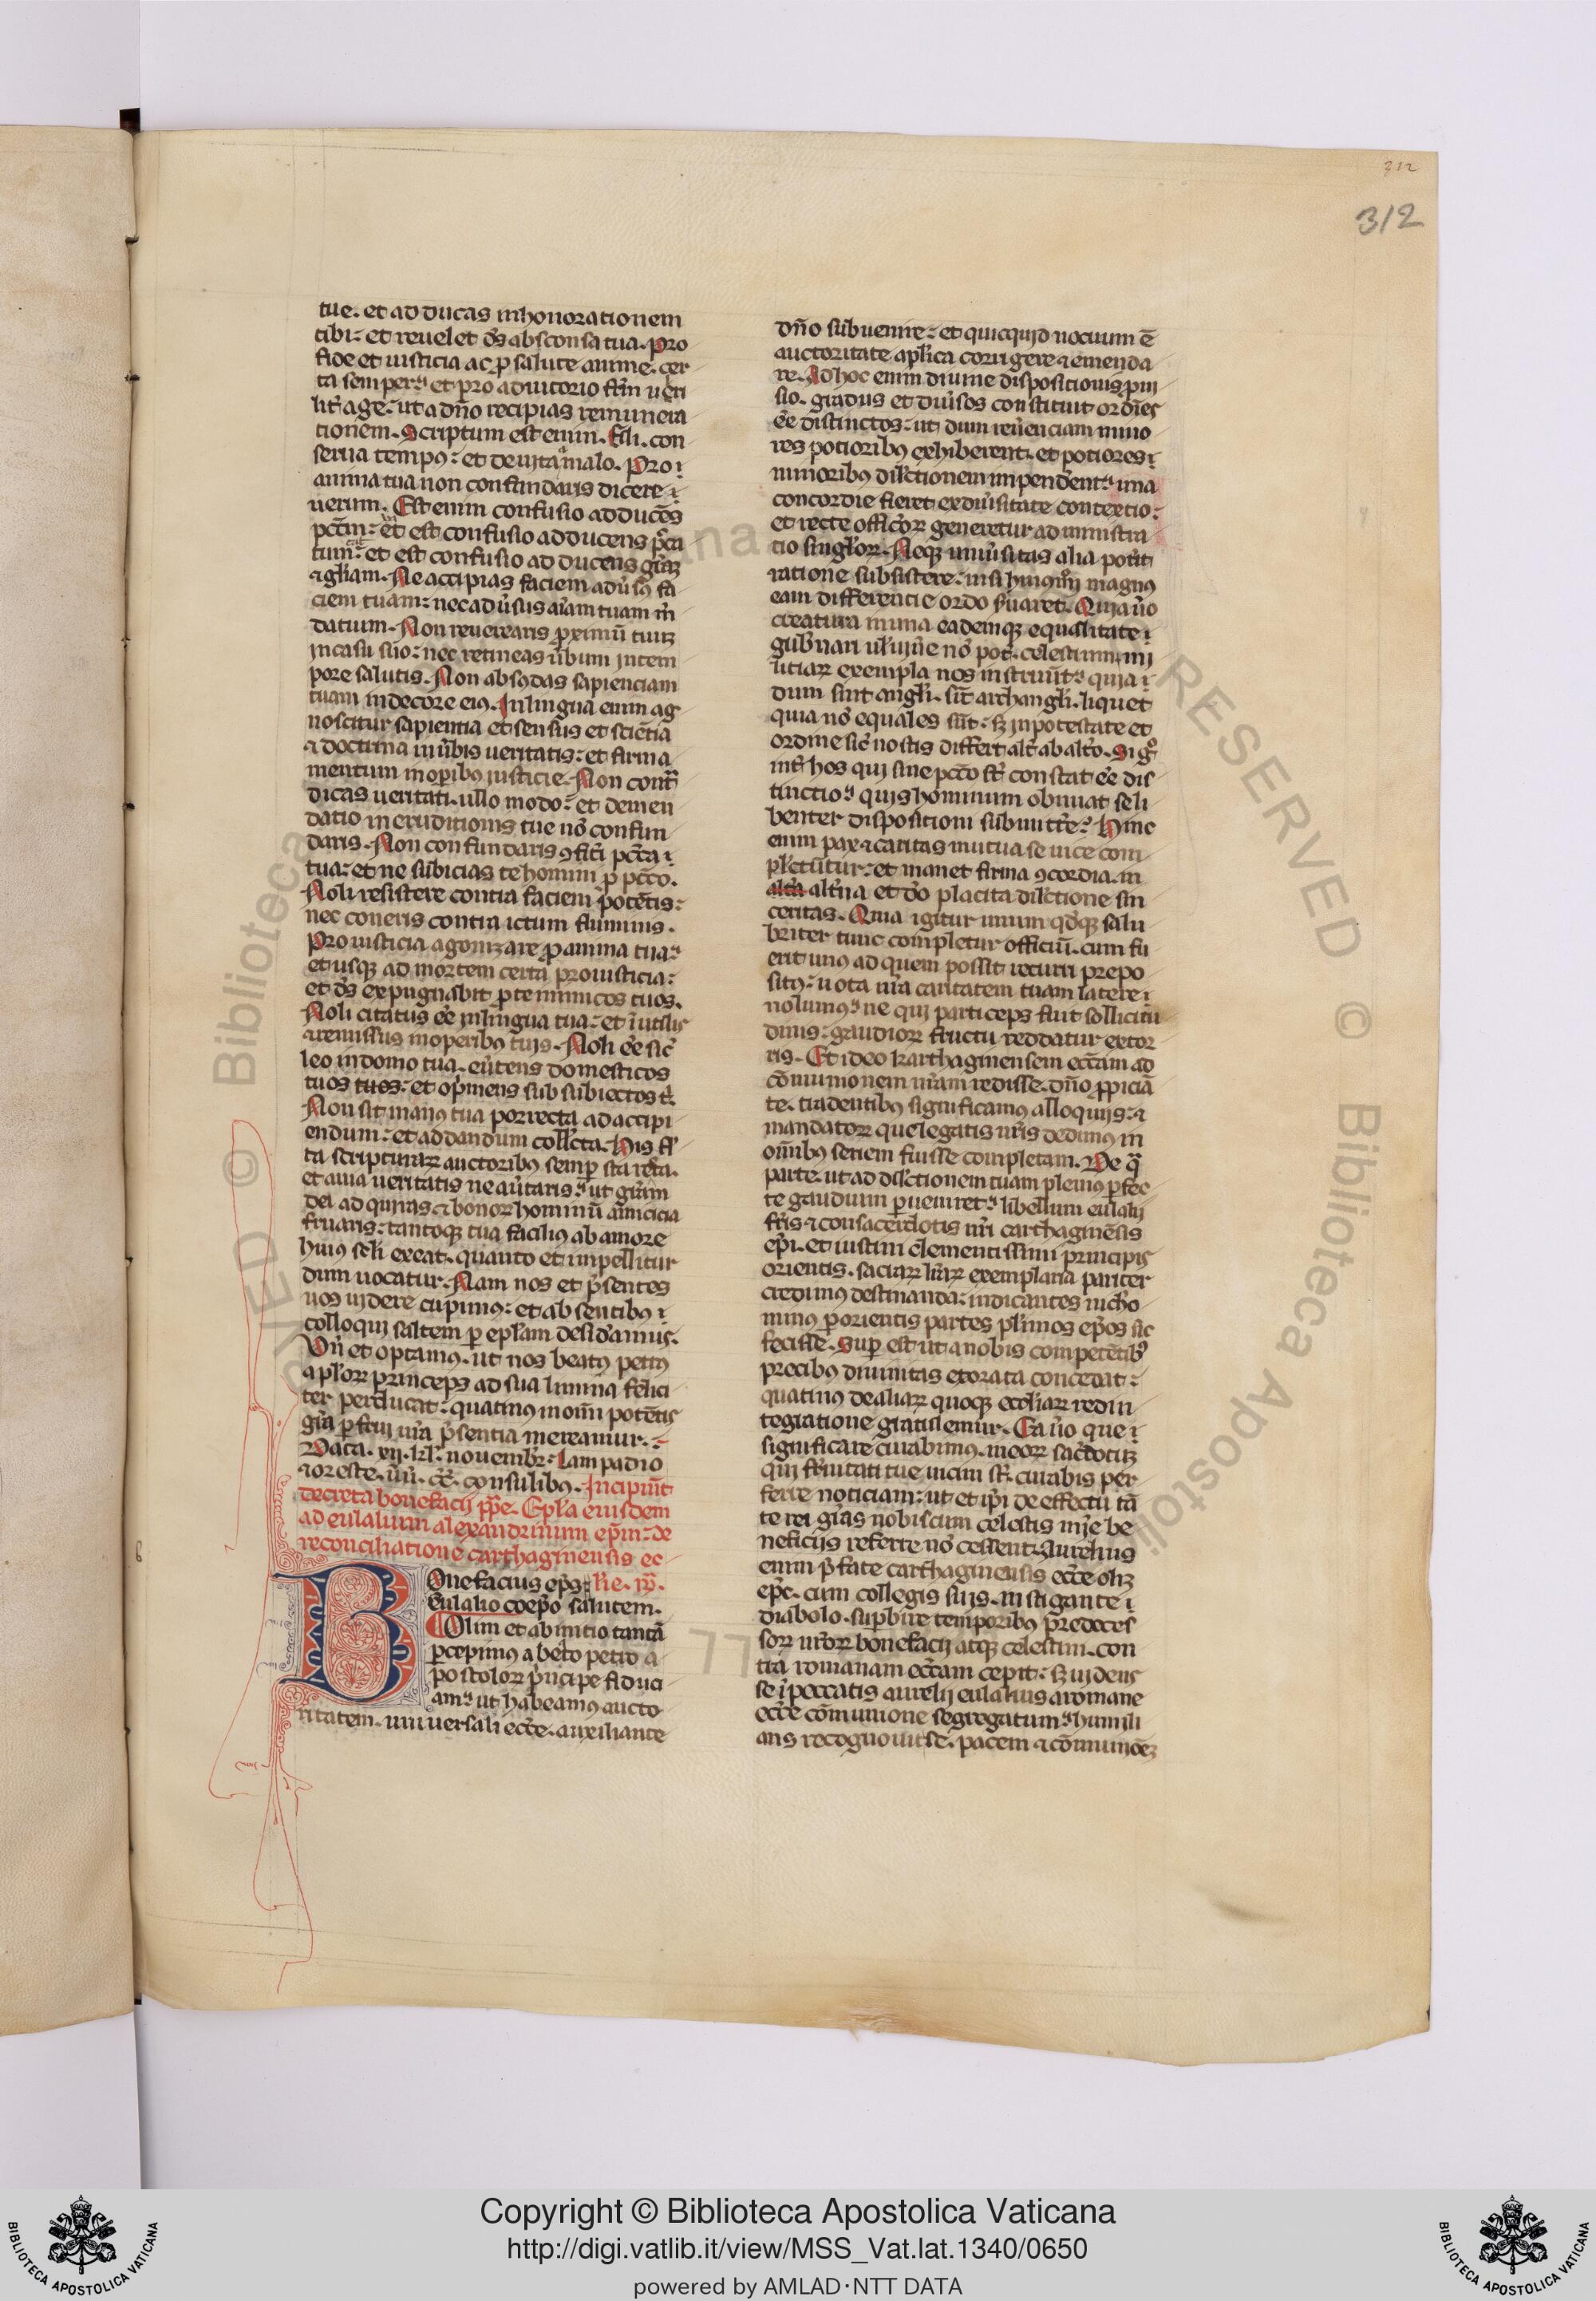 312
312
tue. et adducas inhonorationem
tibi: et reuelet ds̄ absconsa tua. Pro
fide et iusticia ac ꝑ salute anime. cer
ta semper: et pro adiutorio frm̄ ueri
lit̄ age: ut a dn̄o recipias remunera
tionem. Scriptum est enim. Fili. con
serua tempus: et deuita a malo. Pro
anima tua non confundaris dicere
uerum. Est enim confusio adducēs
pccm̄: et est confusio adducens p̄cca
tum: et est confusio adducens gr̄aꝫ
⁊ gl̄iam. Ne accipias faciem aduˢsus fa
ciem tuam: nec aduˢsus aīam tuam m̄
datium. Non reuerearis ꝓximū tuuꝫ
in casu suo: nec retineas ūbum in tem
pore salutis. Non abscōdas sapienciam
tuam in decore eius. In lingua enim ag
noscitur sapientia et sensus et sciētia
⁊ doctrina in ūbis ueritatis: et firma
mentum in oꝑibꝰ iusticie. Non cont̄
dicas ueritati. ullo modo: et de men
datio ineruditionis tue nō confun
daris. Non confundaris ꝯfiteri pcc̄a
tua: et ne subicias te homini ꝓ pcc̄o.
Noli resistere contra faciem potētis:
nec coneris contra ictum fluminis.
Pro iusticia agonizare ꝓ anima tua:
et usqꝫ ad mortem certa pro iusticia:
et ds̄ expugnabit ꝓ te inimicos tuos.
Noli citatus eē in lingua tua: et īutilis
⁊ remissus in operibus tuis. Noli eē sic̄
leo in domo tua. eūtens domesticos
tuos tuos: et opp̄mens sub subiectos t̄.
Non sit manus tua porrecta ad accipi
endum: et ad dandum coll̄cta. His fr̄
ta scripturaꝝ auctoribꝰ semꝑ sta rec̄ta.
et a uia ueritatis ne aūtaris: ut gr̄am
dei adquiras ⁊ bonoꝝ hominū amicicia
fruaris: tantoqꝫ tua facilius ab amore
huius sc̄li exeat. quanto et impellitur
dum uocatur. Nam nos et p̄sentes
uos uidere cupimus: et absentibus
colloqui saltem ꝑ epl̄am desid̄amus.
Vn̄ et optamus. ut nos beatus petrus
apl̄oꝝ princeps ad sua limina felici
ter perducat: quatinus in omī potētis
gr̄a ꝑfrui ur̄a p̄sentia mereamur.
Data. xij. kl̄. nouembr̄: Lampadio
⁊ oreste. ūū. cc̄. consulibꝰ. Incipiūt
decreta bonefacij pp̄e. Epl̄a eiusdem
ad eulalium alexandrinum ep̄m: de
reconciliatione carthaginensis ec
Bonefacius ep̄s.
eulalio coep̄o salutem.
Olim et ab initio tantā
ꝑcepimus a beāto petro a
postoloꝝ p̄ncipe fiduci
am: ut habeamus aucto
ritatem. uniuersali ecc̄e. auxiliante
dn̄o subuenire: et quicquid nociuum ē
auctoritate apl̄ica corrigere ⁊ emenda
re. Ad hoc enim diuine dispositionis ꝓui
sio. gradus et diūsos constituit ordīes
eē distinctos: ut dum reūenciam mino
res potioribꝰ exhiberent. et potiores
minoribꝰ dil̄ctionem impendēnt: una
concordie fieret ex diūsitate contextio:
et recte officioꝝ generetur administra
tio singl̄oꝝ. Neqꝫ uniūsitas alia potīt
ratione subsistere: nisi huiusmōi magnus
eam differencie ordo s̄uaret. Quia ūo
creatura in una eademqꝫ equalitate
gub̄nari ul̄ uiūe nō pot̄. celestium mi
litiaꝝ exempla nos instruūt: quia
dum sint angl̄i. sūt archangl̄i. liquet
quia nō equales sūt: sꝫ in potestate et
ordine sic̄ nostis differt alt̄ ab alt̄o. Si gͦ
int̄ hos qui sine pcc̄o sūt constat eē dis
tinctio: quis hominum obnuat se li
benter dispositioni submitt̄e? Hinc
enim pax ⁊ caritas mutua se uice com
pl̄ectūtur: et manet firma ꝯcordia. in
alt̄a alt̄na et dō placita dil̄ctione sin
ceritas. Quia igitur unum qd̄qꝫ salu
briter tunc completur officiū. cum fu
erit unus ad quem possit recurri prepo
situs: uota nr̄a caritatem tuam latere
nolumus: ne qui particeps fuit sollicitu
dinis: gaudioꝝ fructu reddatur extor
ris. Et ideo karthaginensem ecc̄am ad
cōmunionem nr̄am redisse. dn̄o ꝓpiciā
te. tradentibꝰ significamus alloquijs: ⁊
mandatoꝝ que legatis nr̄is dedimus in
om̄ibꝰ seriem fuisse completam. De q̄
parte. ut ad dil̄ctionem tuam plenius ꝑfec
te gaudium ꝑueniret: libellum eulalij
fr̄is ⁊ consacerdotis nr̄i carthaginēsis
ep̄i. et iustini clementissimi principis
orientis. sacraꝝ lr̄aꝝ exemplaria pariter
credimus destinanda: indicantes nicho
minus ꝑ orientis partes pl̄imos ep̄os sic
fecisse. Suꝑ est ut a nobis competētibꝰ
precibꝰ diuinitas exorata concedat:
quatinus de aliaꝝ quoqꝫ eccl̄iaꝝ redin
tegratione gratulemur. Ea ūo que
significare curabimus. meoꝝ sac̄dotuꝫ
qui fr̄nitati tue uicini sūt. curabis per
ferre noticiam: ut et ip̄i de effectu tā
te rei gr̄as nobiscum celestis mīe be
neficijs referre nō cessent. Aurelius
enim p̄fate carthaginensis ecc̄e olīꝫ
ep̄c. cum collegis suis. instigante
diabolo. suꝑbire temporibꝰ predeces
soꝝ nr̄oꝝ bonefacij atqꝫ celestini. con
tra romanam ecc̄am cepit: sꝫ uidens
se ī peccatis aurelij eulalius a romane
ecc̄e cōmunione segregatum: humili
ans recognouit se. pacem ⁊ cōmuniōeꝫ
Copyright © Biblioteca Apostolica Vaticana
http://digi.vatlib.it/view/MSS_Vat.lat.1340/0650
powered by AMLAD·NTT DATA
BIBLIOTECA APOSTOLICA VATICANA
BIBLIOTECA APOSTOLICA VATICANA